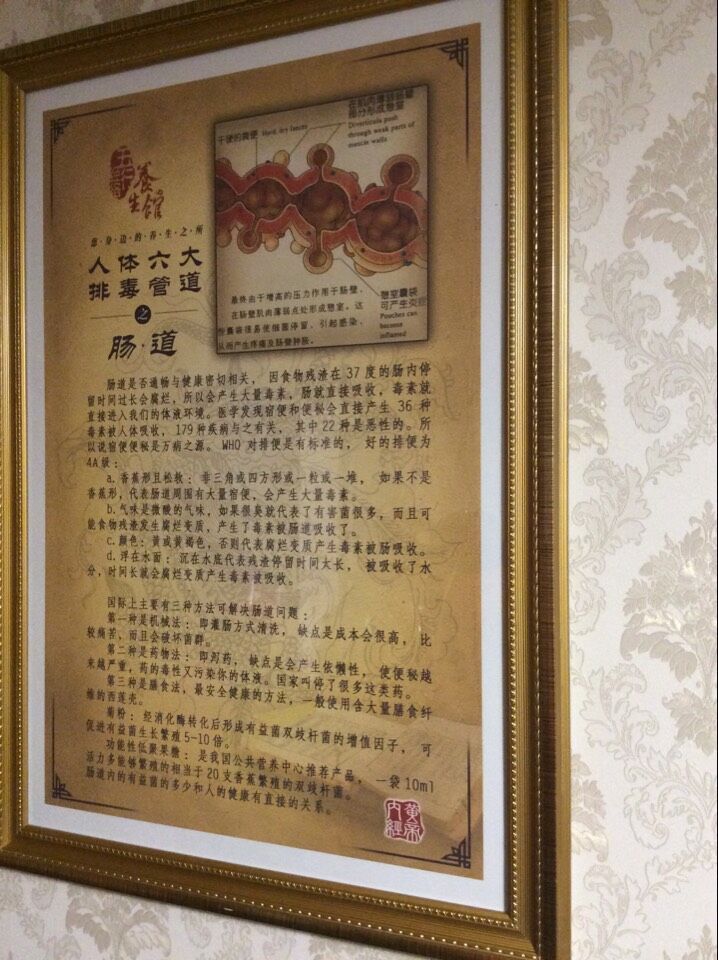 养生馆
您·身·边·的·养·生·之·所
人体六大
排毒管道
之
肠·道
干硬的粪便 Hard, dry faeces
在肌肉薄弱肠壁
部分形成憩室
Diverticula push
through weak parts of
muscle walls
最终由于增高的压力作用于肠壁，
在肠壁肌肉薄弱点处形成憩室。这
些囊袋很易使细菌停留，引起感染，
从而产生疼痛及肠管肿胀。
憩室囊袋
可产生炎症
Pouches can
become
inflamed
肠道是否通畅与健康密切相关，因食物残渣在 37 度的肠内停
留时间过长会腐烂，所以会产生大量毒素，肠就直接吸收，毒素就
直接进入我们的体液环境。医学发现宿便和便秘会直接产生 36 种
毒素被人体吸收，179种疾病与之有关，其中22种是恶性的。所
以说宿便便秘是万病之源。WHO 对排便是有标准的，好的排便为
4A级：
a.香蕉形且松软：非三角或四方形或一粒或一堆，如果不是
香蕉形，代表肠道周围有大量宿便，会产生大量毒素。
b.气味是微酸的气味，如果很臭就代表了有害菌很多，而且可
能食物残渣发生腐烂变质，产生了毒素被肠道吸收了。
c.颜色：黄或黄褐色，否则代表腐烂变质产生毒素被肠吸收。
d.浮在水面：沉在水底代表残渣停留时间太长，被吸收了水
分，时间长就会腐烂变质产生毒素被吸收。
国际上主要有三种方法可解决肠道问题：
第一种是机械法：即灌肠方式清洗，缺点是成本会很高，比
较痛苦，而且会破坏菌群。
第二种是药物法：即泻药，缺点是会产生依懒性，使便秘越
来越严重，药的毒性又污染你的体液。国家叫停了很多这类药。
第三种是膳食法，最安全健康的方法，一般使用含大量膳食纤
维的西莲壳。
菊粉：经消化酶转化后形成有益菌双歧杆菌的增值因子，可
促进有益菌生长繁殖5-10倍。
功能性低聚果糖：是我国公共营养中心推荐产品，一袋10ml
活力多能够繁殖的相当于20支香蕉繁殖的双歧杆菌。
肠道内的有益菌的多少和人的健康有直接的关系。
黄帝
内经